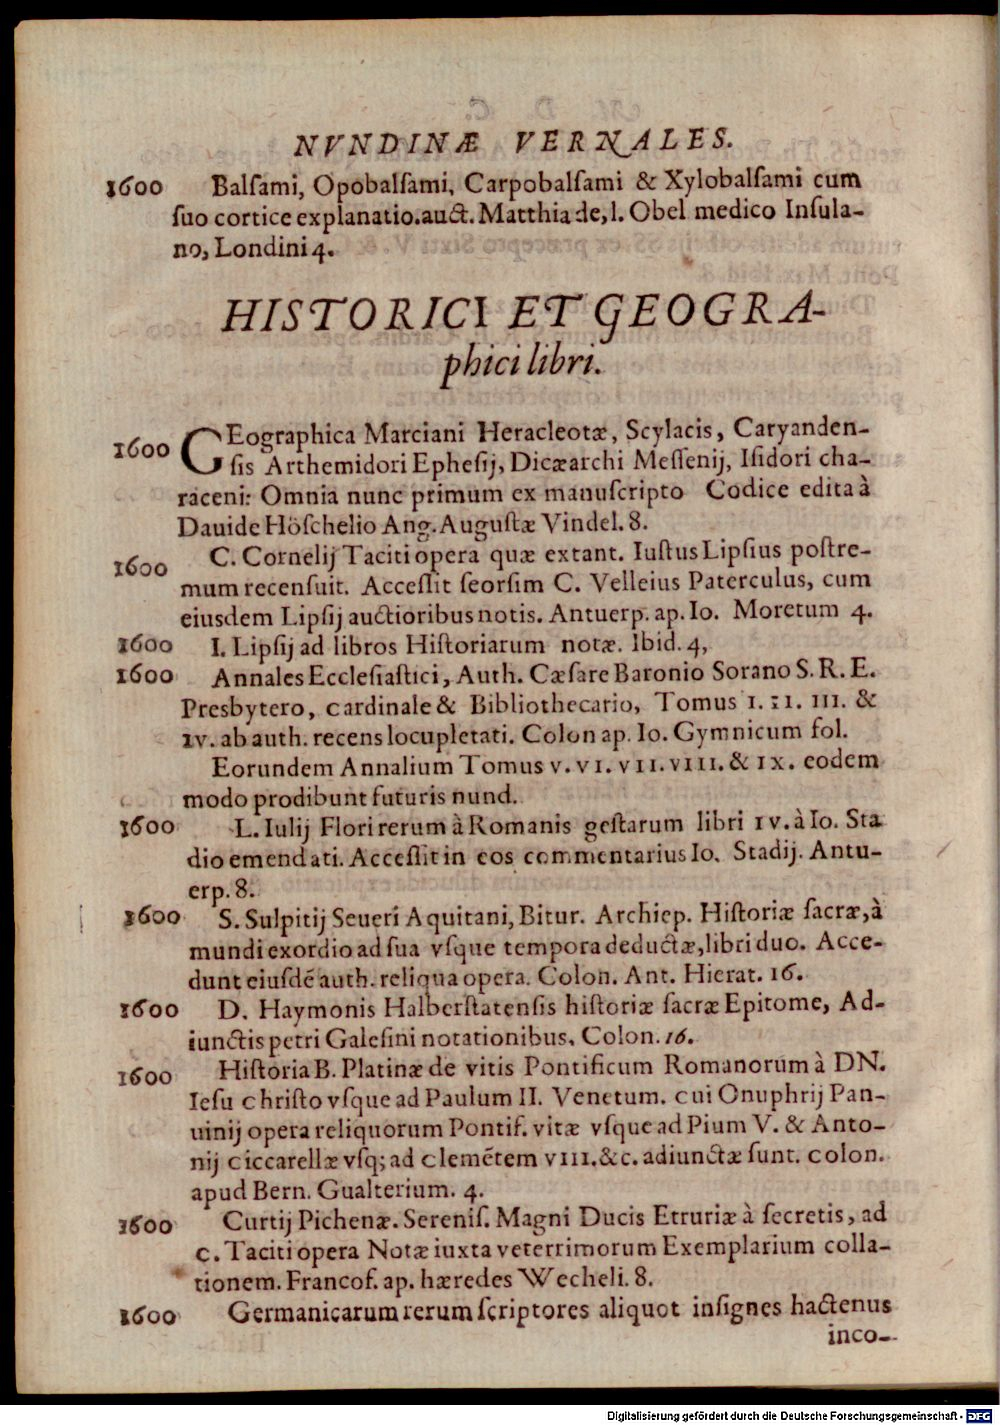 NVNDINÆ VERNALES.
1600 Balſami, Opobalſami, Carpobalſami & Xylobalſami cum
ſuo cortice explanatio. auct. Matthia de, l. Obel medico Inſula-
no, Londini 4.
HISTORICI ET GEOGRA-
phici libri.
1600 GEographica Marciani Heracleotæ, Scylacis, Caryanden-
ſis Arthemidori Epheſij, Dicæarchi Meſſenij, Iſidori cha-
raceni: Omnia nunc primum ex manuſcripto Codice edita à
Dauide Höſchelio Ang. Auguſtæ Vindel. 8.
1600 C. Cornelij Taciti opera quæ extant. Iuſtus Lipſius poſtre-
mum recenſuit. Acceſſit ſeorſim C. Velleius Paterculus, cum
eiusdem Lipſij auctioribus notis. Antuerp. ap. Io. Moretum 4.
1600 I. Lipſij ad libros Hiſtoriarum notæ. Ibid. 4,
1600 Annales Eccleſiaſtici, Auth. Cæſare Baronio Sorano S. R. E.
Presbytero, cardinale & Bibliothecario, Tomus I. II. III. &
IV. ab auth. recens locupletati. Colon ap. Io. Gymnicum fol.
Eorundem Annalium Tomus V. VI. VII. VIII. & IX. eodem
modo prodibunt futuris nund.
1600 L. Iulij Flori rerum à Romanis geſtarum libri IV. à Io. Sta
dio emendati. Acceſſit in eos commentarius Io. Stadij. Antu-
erp. 8.
1600 S. Sulpitij Seueri Aquitani, Bitur. Archiep. Hiſtoriæ ſacræ, à
mundi exordio ad ſua vſque tempora deductæ, libri duo. Acce-
dunt eiuſdē auth. reliqua opera. Colon. Ant. Hierat. 16.
1600 D. Haymonis Halberſtatenſis hiſtoriæ ſacræ Epitome, Ad-
iunctis petri Galeſini notationibus. Colon. 16.
1600 Hiſtoria B. Platinæ de vitis Pontificum Romanorum à DN.
Ieſu chriſto vſque ad Paulum II. Venetum. cui Onuphrij Pan-
uinij opera reliquorum Pontif. vitæ vſque ad Pium V. & Anto-
nij ciccarellæ vſq; ad clemētem VIII. &c. adiunctæ ſunt. colon.
apud Bern. Gualterium. 4.
1600 Curtij Pichenæ. Sereniſ. Magni Ducis Etruriæ à ſecretis, ad
c. Taciti opera Notæ iuxta veterrimorum Exemplarium colla-
tionem. Francof. ap. hæredes Wecheli. 8.
1600 Germanicarum rerum ſcriptores aliquot inſignes hactenus
inco-
Digitalisierung gefördert durch die Deutsche Forschungsgemeinschaft - DFG